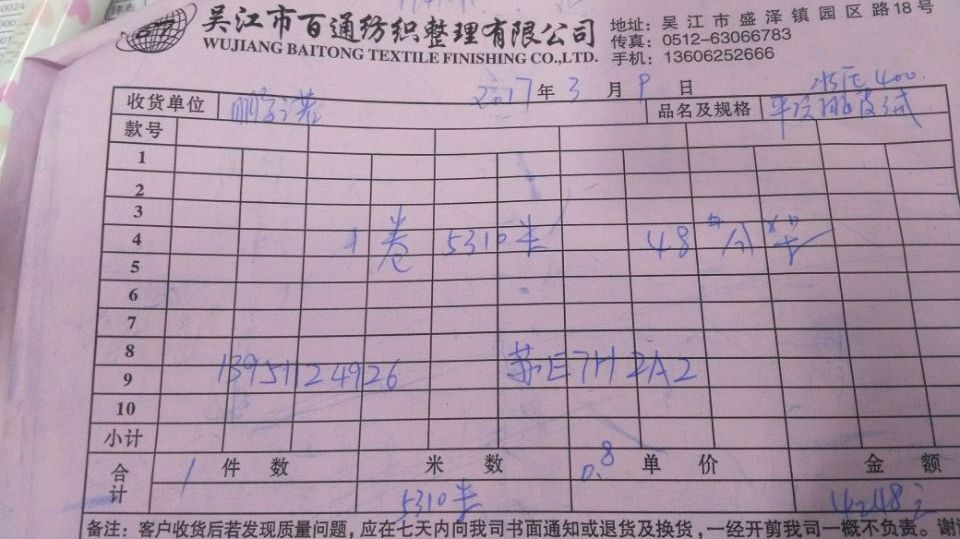 吴江市百通纺织整理有限公司
WUJIANG BAITONG TEXTILE FINISHING CO.,LTD.
地址：吴江市盛泽镇园区路18号
传真：0512-63066783
手机：13606252666
2017年3月9日
收货单位
品名及规格
400
款号
1
2
3
4 1卷 5310米 48
5
6
7
8
9 13951124926 苏E7H2A2
10
小计
合计 1件数 米数 0.8单价 金额
5310米 4248元
备注：客户收货后若发现质量问题，应在七天内向我司书面通知或退货及换货，一经开剪我司一概不负责。谢